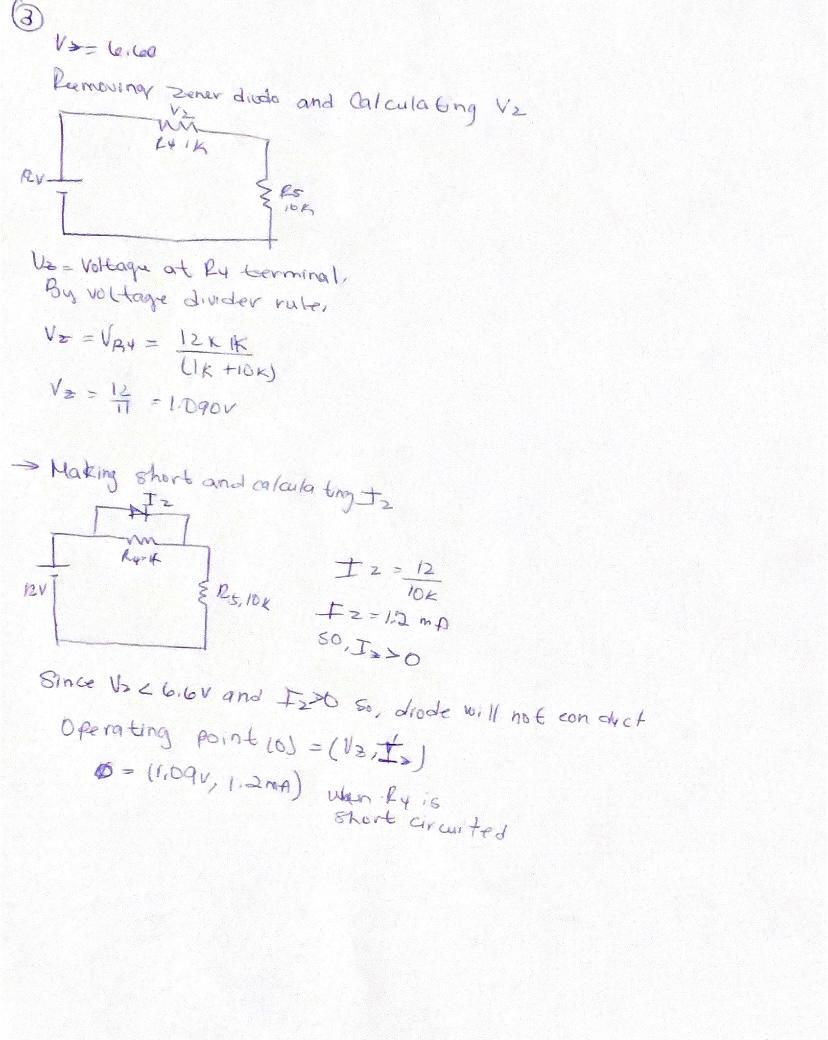 3
Vz = 6.60
Removing zener diode and Calculating Vz
Vz
R4 1K
12V
R5
10K
Vz = Voltage at R4 terminal.
By voltage divider rule,
Vz = VR4 = 12 x 1K
(1K + 10K)
Vz = 12/11 = 1.090V
→ Making short and calculating Iz
Iz
R4 1K
12V
R5, 10K
Iz = 12
10K
Iz = 1.2 mA
so, Iz > 0
Since Vz < 6.6V and Iz > 0 so, diode will not conduct
Operating point (0) = (Vz, Iz)
= (1.09V, 1.2mA) when R4 is
short circuited